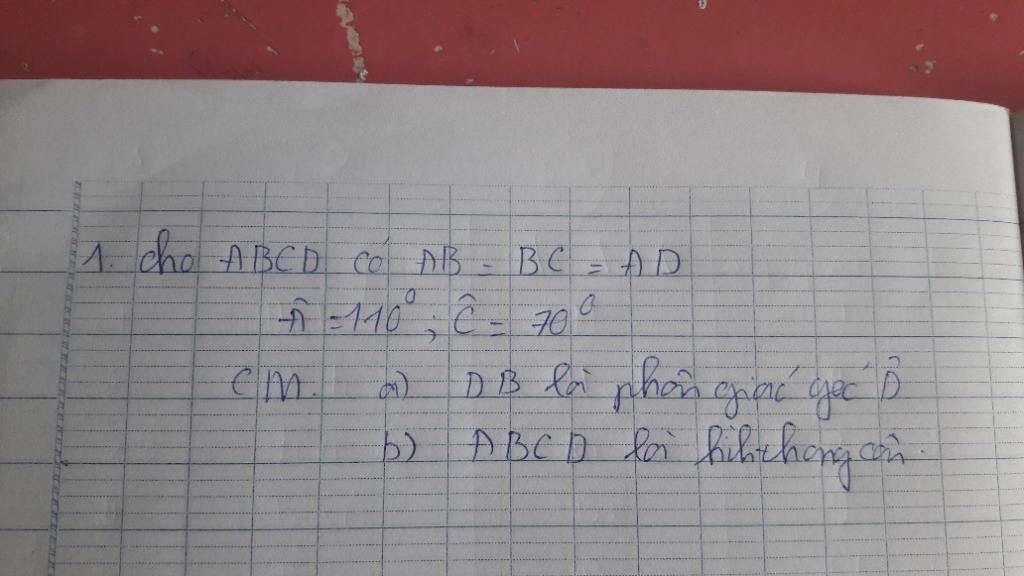 1. cho ABCD có AB = BC = AD
Â = 110⁰ ; Ĉ = 70⁰
CM. a) DB là phân giác góc D̂
b) ABCD là hìhthang cân.